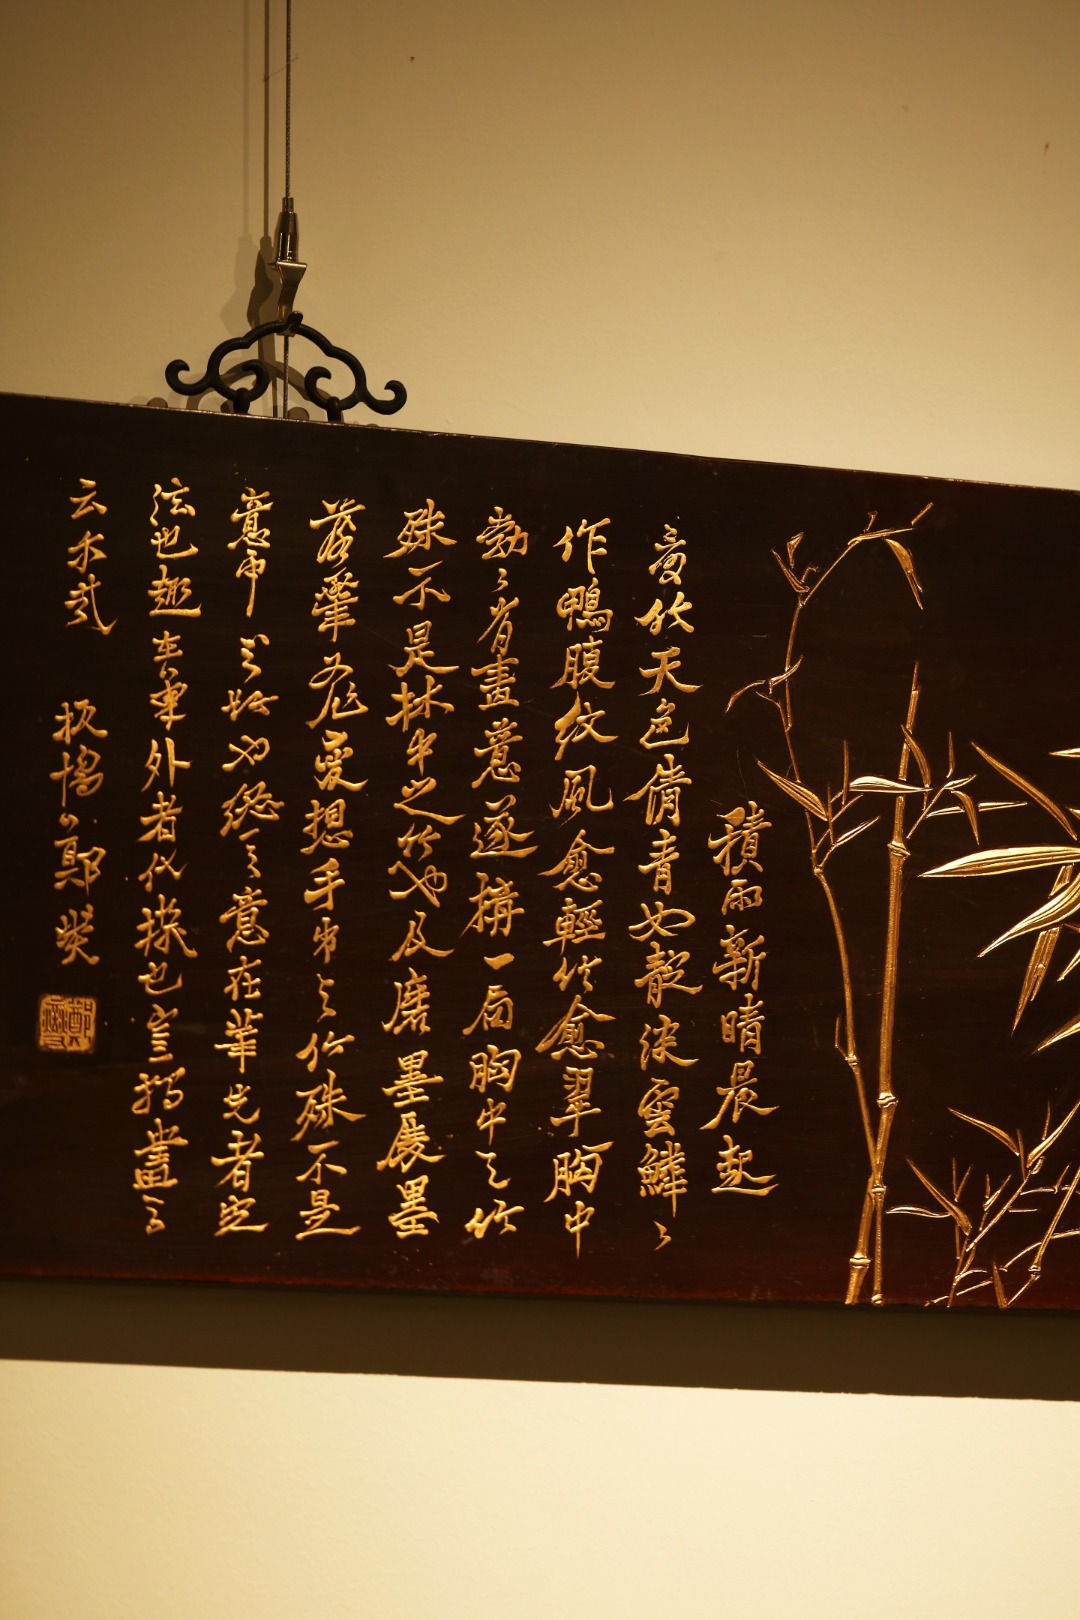 積雨新晴晨起
竹天色倩青如靛淡雲鱗〻
作鴨腹紋風愈輕竹愈翠胸中
勃〻有畫意遂搆一局胸中之竹
殊不是林中之竹也及磨墨展墨
落筆忽變想手中之竹殊不是
意中之竹也總之意在筆先者定
法也趣在筆外者化機也豈獨畫
云乎哉 板橋鄭燮